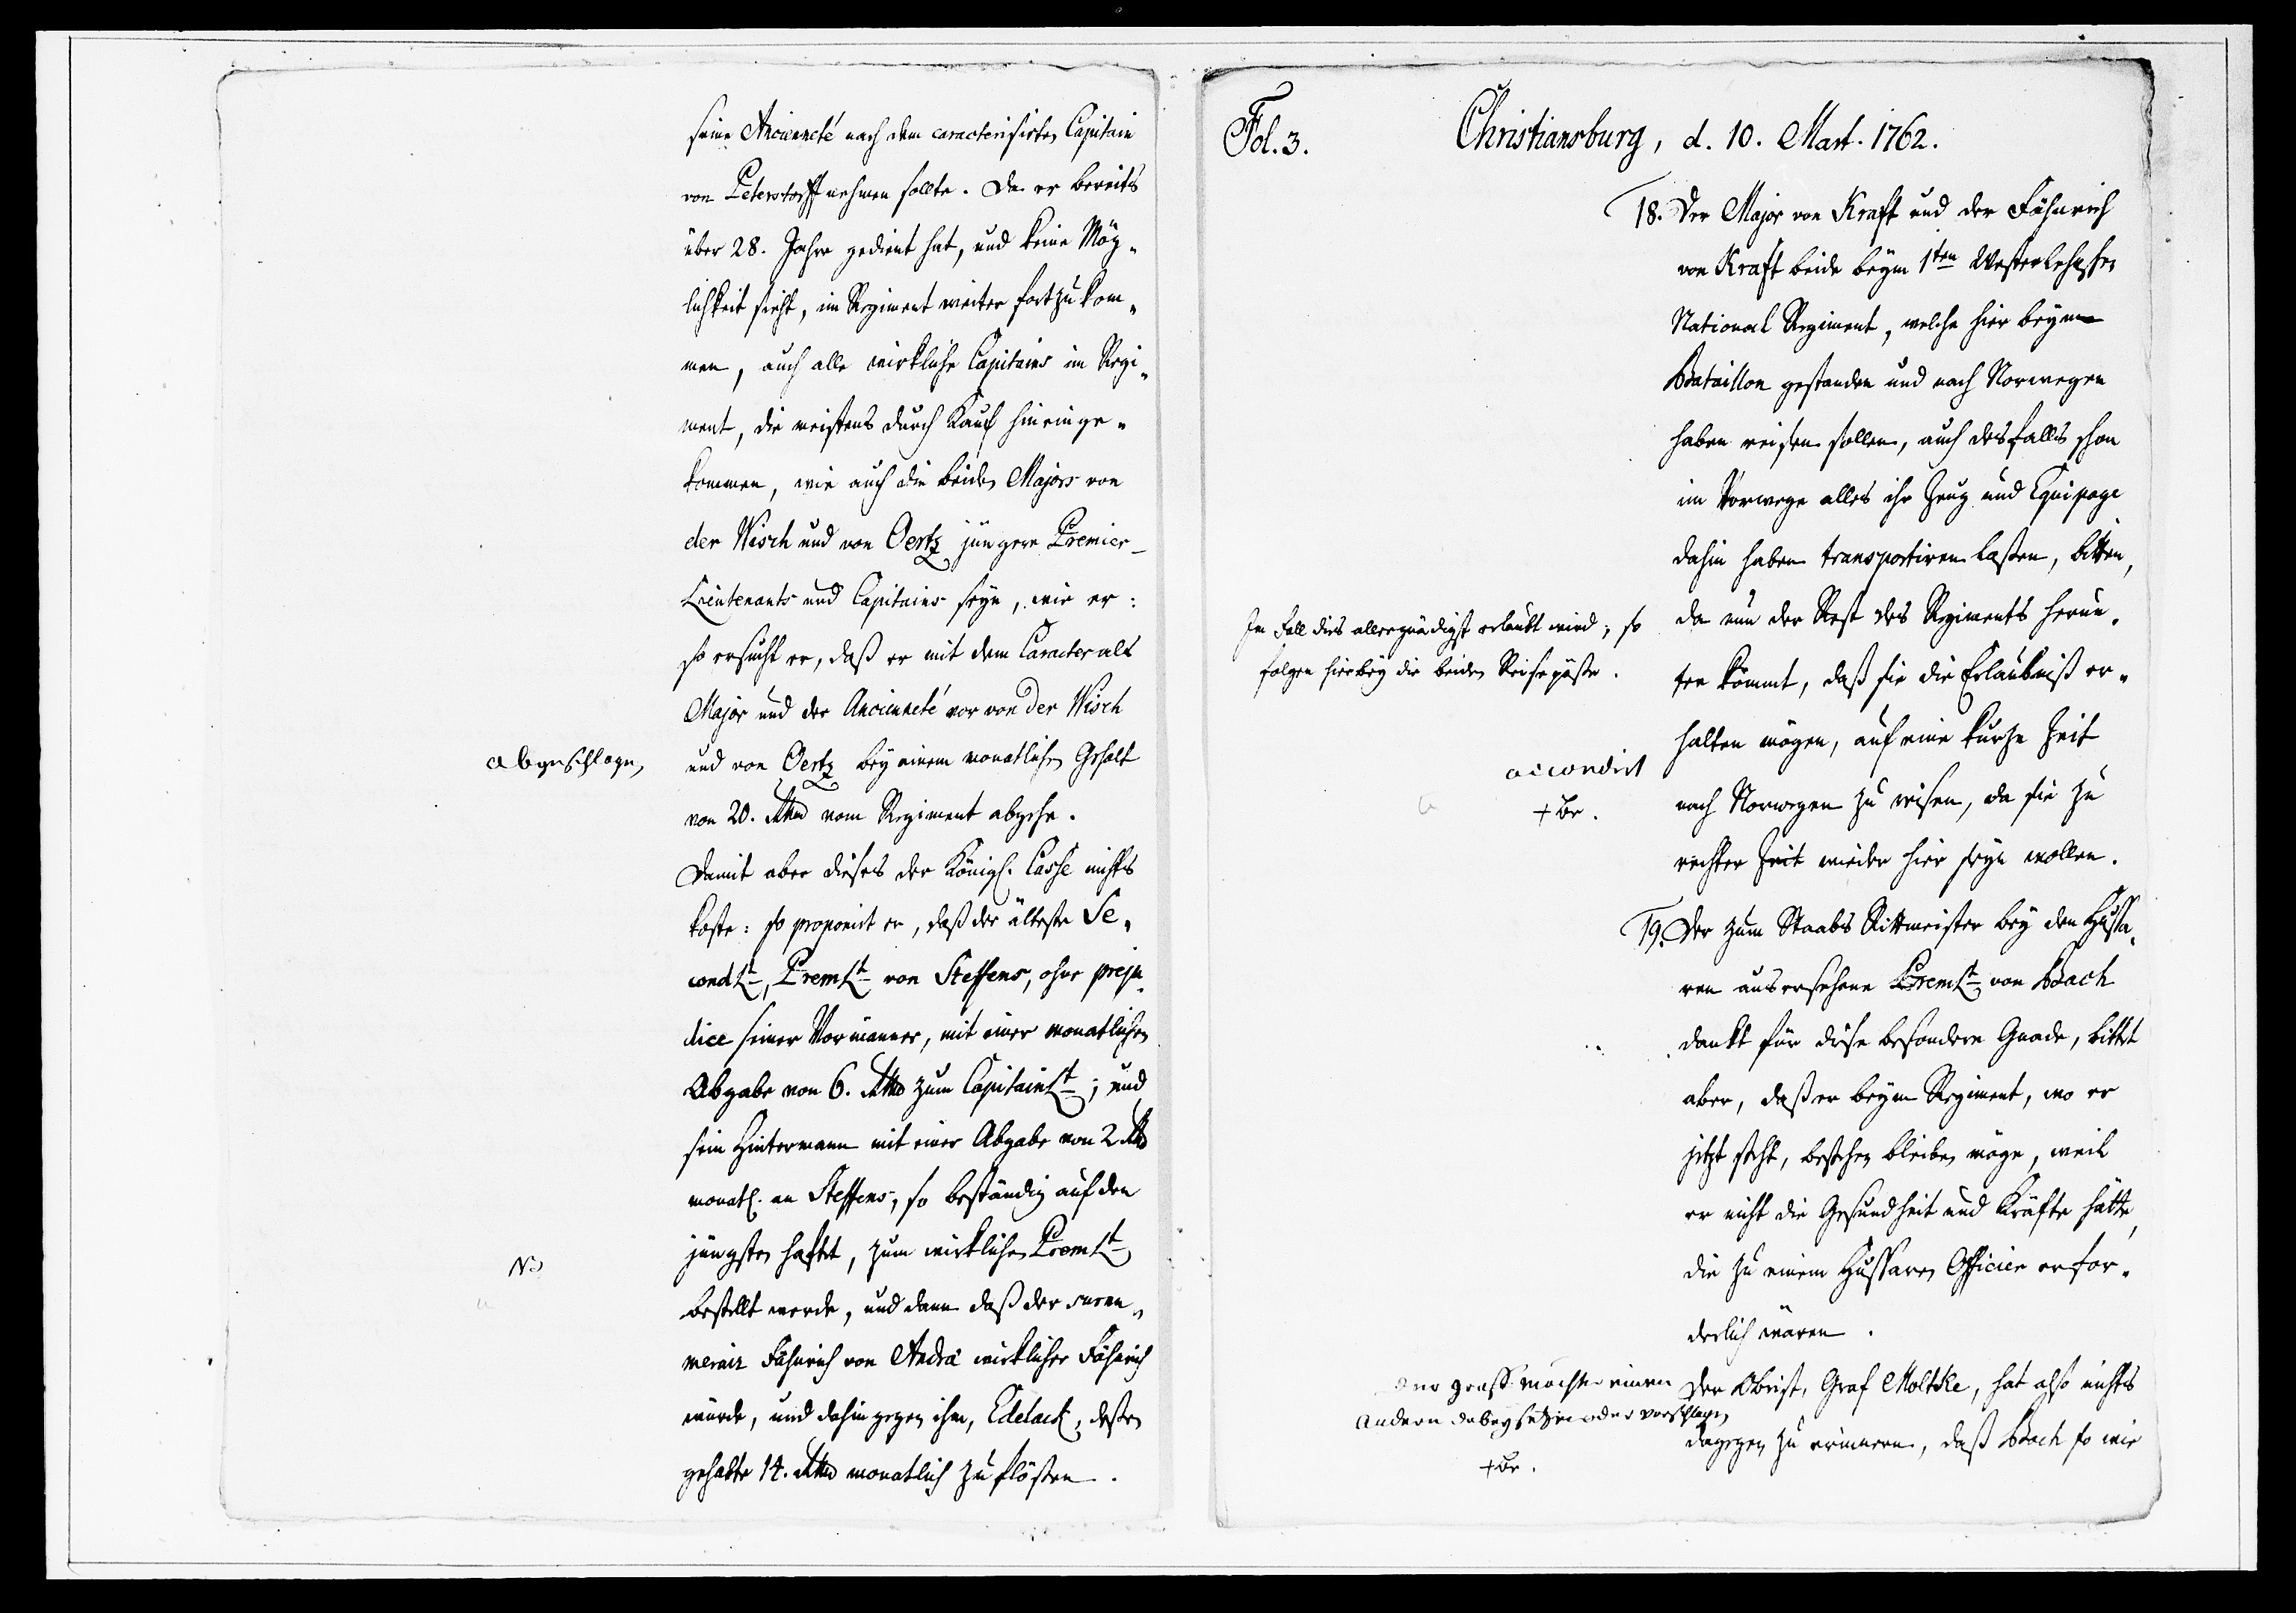 seine Ancienneté nach dem caracterisirten Capitain
von Peterstorff nehmen sollte. Da er bereits
über 28. Jahre gedient hat, und keine Mög-
lichkeit sieht, im Regiment weiter fortzukom-
men, auch alle wirkliche Capitains im Regi-
ment, die meistens durch Kauf hineinge-
kommen, wie auch die beiden Majors von
der Wisch und von Oertz jüngere Premier-
Lieutenants und Capitains seyn, wie er:
so ersucht er, daß er mit dem Caracter als
Major und der Ancienneté vor von der Wisch
abgeschlagen,
und von Oertz bey einem monatlichen Gehalt
von 20. Rthlr vom Regiment abgehe.
Damit aber dieses der Königl. Casse nichts
koste: so proponirt er, daß der älteste Se-
condLt, PremLt von Steffens, ohne preju-
dice seiner Vormänner, mit einer monatlichen
Abgabe von 6. Rthlr zum CapitainLt; und
sein Hintermann mit einer Abgabe von 2 Rthlr
monatl. an Steffens, so beständig auf den
jüngsten haftet, zum wirklichen PremLt
NB
bestellt werde, und dann daß der surnu-
merair Fähnrich von Andrä wirklicher Fähnrich
würde, und dahingegen ihm, Edelack, dessen
gehabte 14. Rthlr monatlich zuflößen.
Fol. 3.
Christiansburg, d. 10. Mart. 1762.
18. Der Major von Kraft und der Fähnrich
von Kraft beide beym 1ten Westerlehnschen
National Regiment, welche hier beym
Bataillon gestanden und nach Norwegen
haben reisen sollen, auch desfalls schon
im Vorwege alles ihr Zeug und Equipage
dahin haben transportiren laßen, bitten,
da nun der Rest des Regiments herun-
ter kömmt, daß sie die Erlaubniß er-
halten mögen, auf eine kurze Zeit
nach Norwegen zu reisen, da sie zu
rechter Zeit wieder hier seyn wollen.
Im Fall dies allergnädigst erlaubt wird; so
folgen hierbey die beiden Reisepäße.
accordirt
+ Br.
19. Der zum Staabs Rittmeister bey den Hussa-
ren ausersehene PremLt von Bach
dankt für diese besondere Gnade, bittet
aber, daß er beym Regiment, wo er
jetzt steht, bestehen bleiben möge, weil
er nicht die Gesundheit und Kräfte hätte,
die zu einem Hussaren Officier erfor-
derlich wären.
Der Obrist, Graf Moltke, hat also nichts
dagegen zu erinnern, daß Bach so wie
der graff möchte einen
andern dabey setzen oder vorschlagen
+ Br.